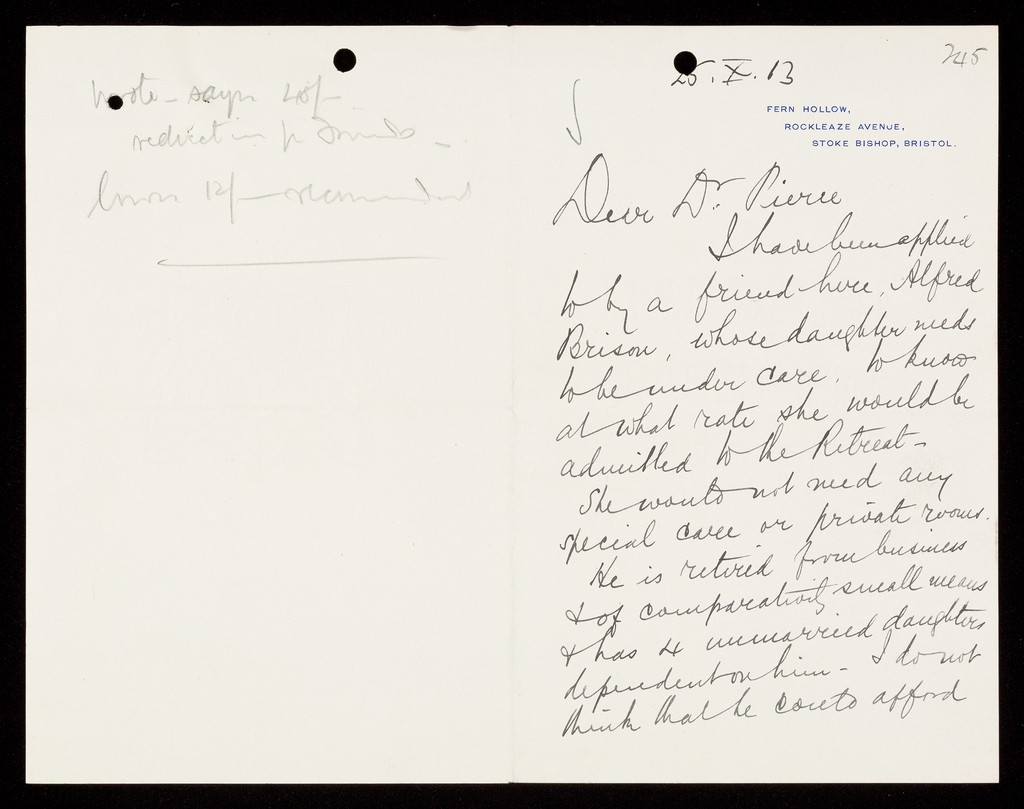 wrote - says 40/-
reduction for Friends -
12/- recommended
245
25.X.13
FERN HOLLOW,
ROCKLEAZE AVENUE,
STOKE BISHOP, BRISTOL.
Dear Dr. Pierce
I have been applied
to by a friend here, Alfred
Brison, whose daughter needs
to be under care, to know
at what rate she would be
admitted to the Retreat -
She would not need any
special care or private rooms.
He is retired from business
& of comparatively small means
& has 4 unmarried daughters
dependent on him - I do not
think that he could afford